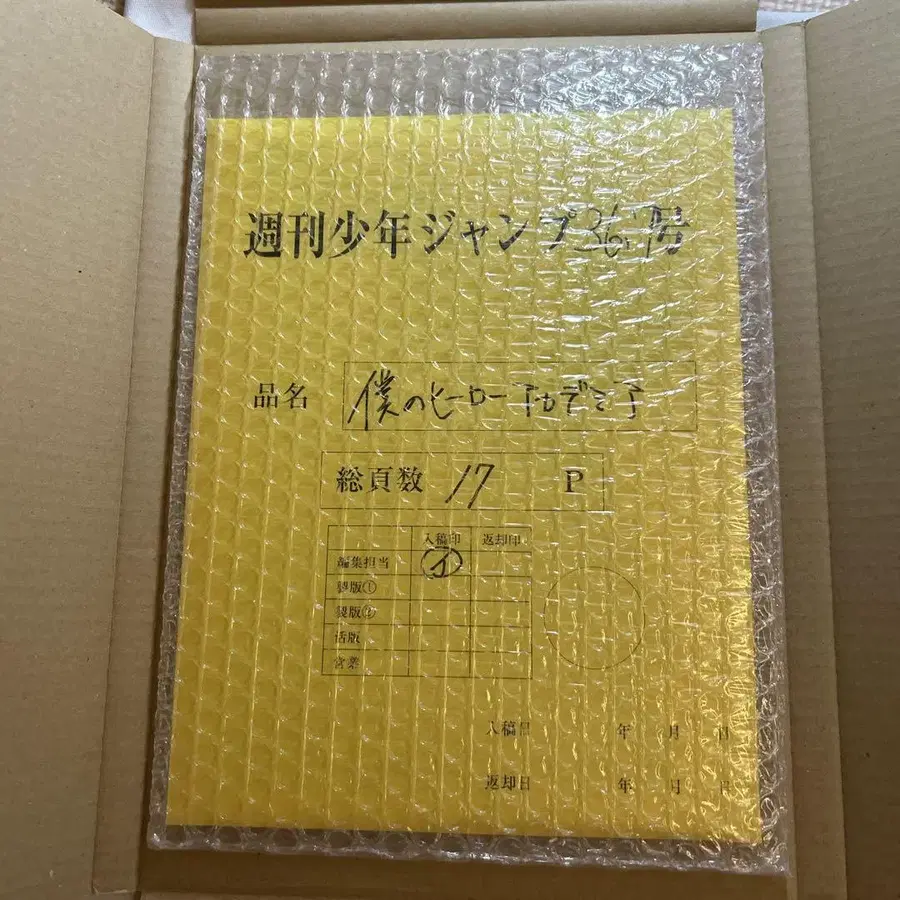 週刊少年ジャンプ36.37号
品名 僕のヒーローアカデミア
総頁数 17 P
入稿印 返却印
編集担当 イ
製版①
製版②
活版
営業
入稿日 年 月 日
返却日 年 月 日